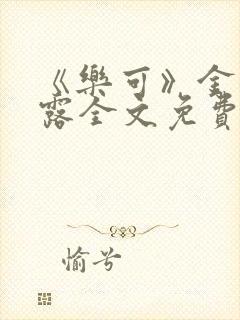 《樂可》金
露全文免費
愉兮